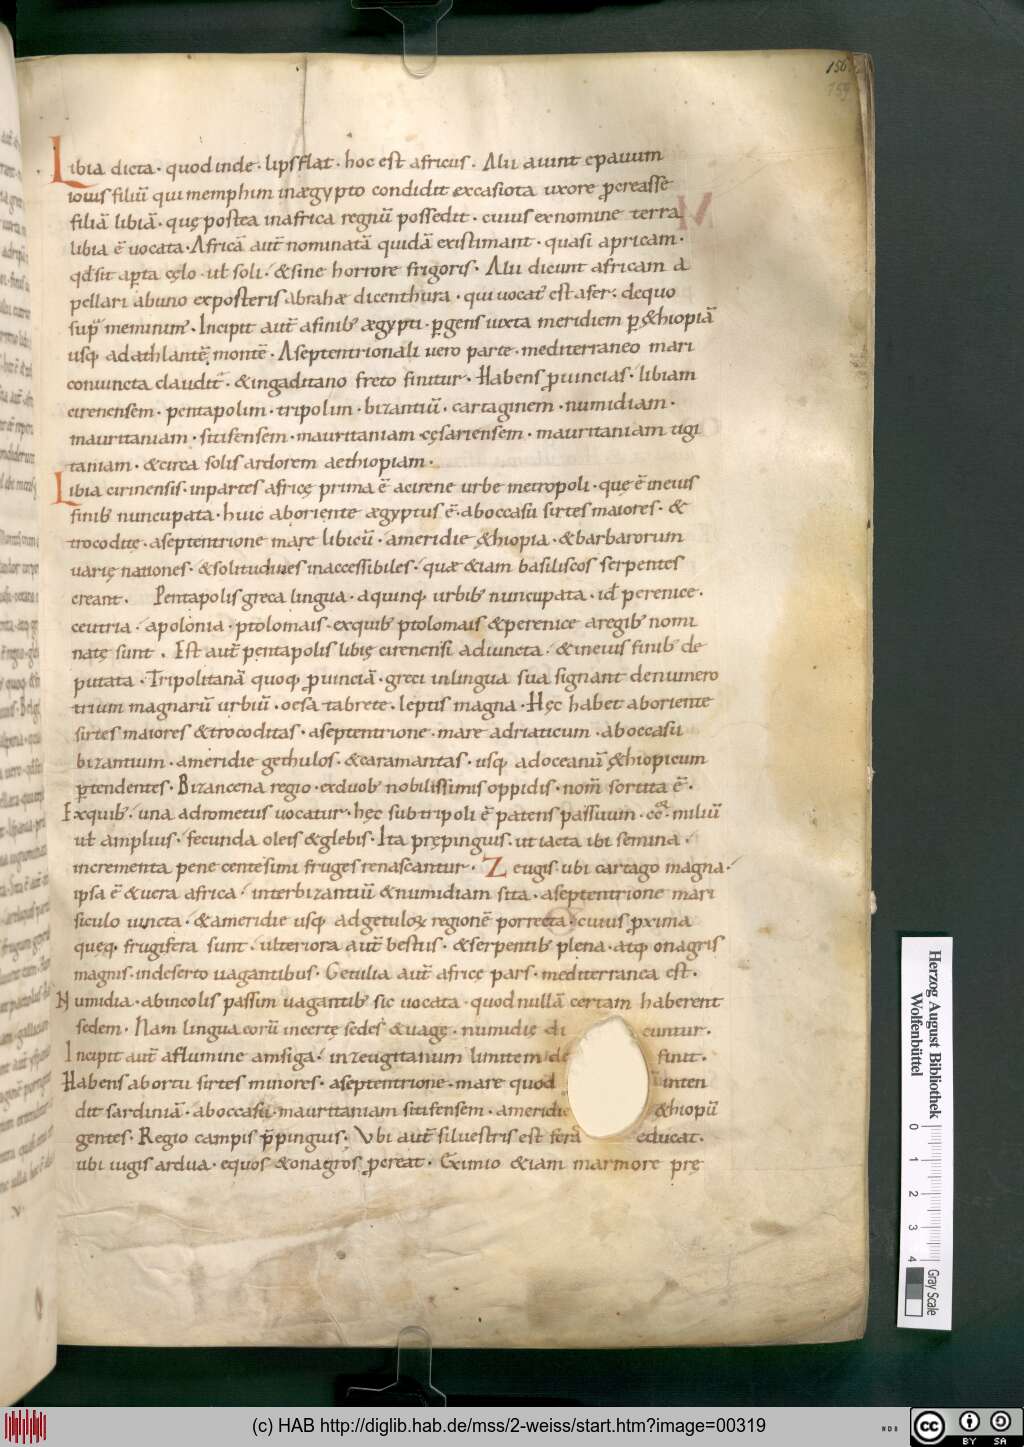 156
159
Libia dicta · quod inde · lips flat · hoc est africus . Alii aiunt epauum
iouis filiū qui memphim in ægypto condidit ex casiota uxore ꝑcreasse
filiā libiā · quę postea in africa regnū possedit · cuius ex nomine terra
libia ē uocata · Africā aut̄ nominatā quidā existimant · quasi apricam ·
qd̄ sit aꝑta cęlo · ut soli · & sine horrore frigoris · Alii dicunt africam a
pellari ab uno ex posteris abrahæ de centhura · qui uocat̄ est afer · de quo
sup̄ meminim̄ · Incipit aut̄ a finib; ægypti · ꝑgens iuxta meridiem ꝑ &hiopiā
usq; ad athlantē montē · A septentrionali uero parte · mediterraneo mari
coniuncta claudit̄ · & in gaditano freto finitur · Habens ꝓuincias · libiam
cirenensem · pentapolim · tripolim · bizantiū · cartaginem · numidiam ·
mauritaniam · sitifensem · mauritaniam cęsariensem · mauritaniam tigi
taniam · & circa solis ardorem aethiopiam ·
Libia cirinensis · in partes africę prima ē a cirene urbe metropoli · quę ē in eius
finib; nuncupata · huic ab oriente ægyptus ē · ab occasu sirtes maiores · &
trocoditę · a septentrione mare libicū · a meridie &hiopia · & barbarorum
uarię nationes · & solitudines inaccessibiles · quæ &iam basiliscos serpentes
creant · Pentapolis greca lingua · a quinq; urbib; nuncupata · id ē perenice ·
ceutria · apolonia · ptolomais · ex quib; ptolomais & perenice a regib; nomi
natę sunt . Est aut̄ pentapolis libię cirenensi adiuncta · & in eius finib; de
putata · Tripolitanā quoq; ꝓuinciā · greci in lingua sua signant de numero
trium magnarū urbiū · ocsa tabrete · leptis magna · Hęc habet ab oriente
sirtes maiores & trocoditas · a septentrione · mare adriaticum · ab occasu
bizantium · a meridie gethulos · & caramantas · usq; ad oceanū &hiopicum
ꝑtendentes · Bizancena regio · ex duob; nobilissimis oppidis · nom̄ sortita ē ·
Ex quib; · una adrometus uocatur · hęc sub tripoli ē patens passuum · ce · miliū
ut amplius · fecunda oleis & glebis · Ita prępinguis · ut iacta ibi semina ·
incrementa pene centesimi fruges renascantur · Zeugis · ubi cartago magna ·
ipsa ē & uera africa · inter bizantiū & numidiam sita · a septentrione mari
siculo iuncta · & a meridie usq; ad getuloꝝ regionē porrecta · cuius ꝓxima
queq; frugifera sunt · ulteriora aut̄ bestiis · & serpentib; plena · atq; onagris
magnis · in deserto uagantibus · Getulia aut̄ africę pars · mediterranea est ·
Numidia · ab incolis passim uagantib; sic uocata · quod nullā certam haberent
sedem · Nam lingua eorū incertę sedes & uagę · numidię di cuntur ·
Incipit aut̄ a flumine amsiga · in zeugitanum limitem de finit ·
Habens ab ortu sirtes minores · a septentrione · mare quod inten
dit sardiniā · ab occasu · mauritaniam sitifensem · a meridie &hiopū
gentes · Regio campis p̄pinguis · Vbi aut̄ siluestris est feras educat ·
ubi iugis ardua · equos & onagros ꝓcreat · Eximio &iam marmore prę
Herzog August Bibliothek
Wolfenbüttel
0 1 2 3 4
Gray Scale
(c) HAB http://diglib.hab.de/mss/2-weiss/start.htm?image=00319
cc BY SA